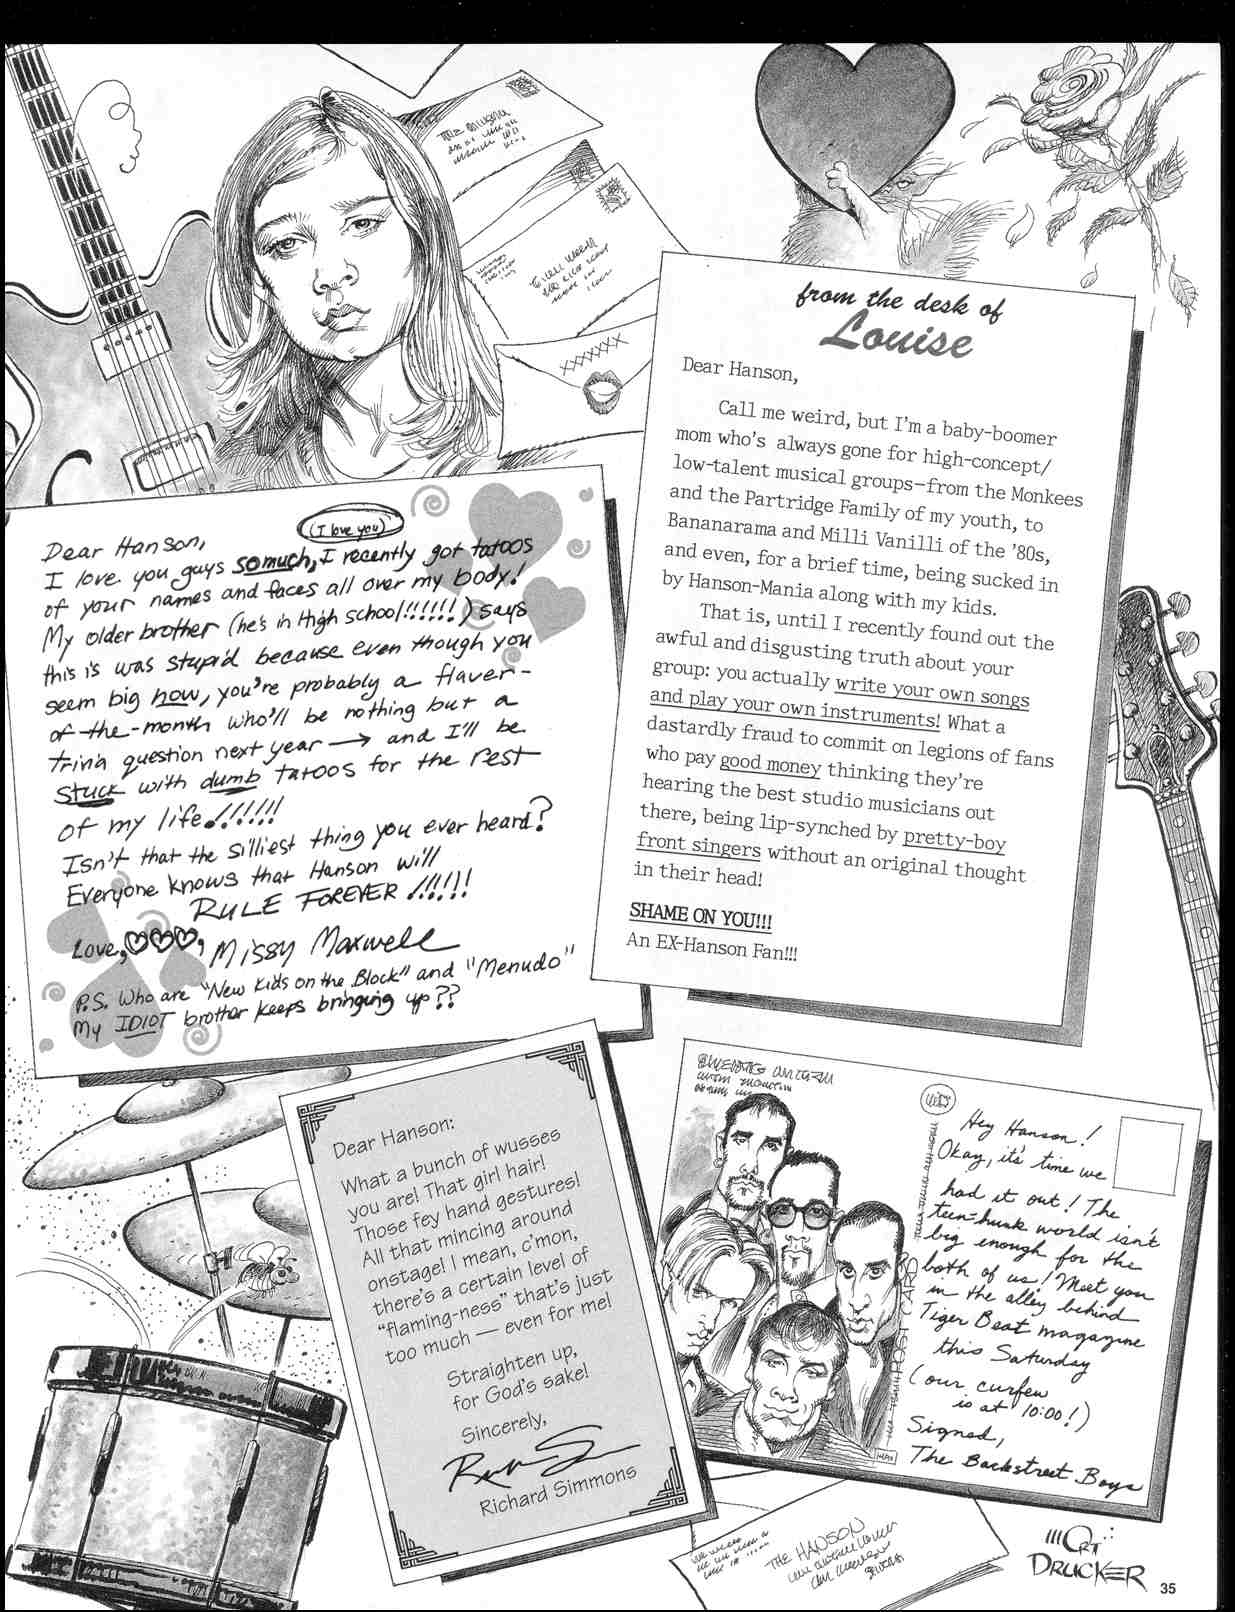 from the desk of
Louise
Dear Hanson,
Call me weird, but I'm a baby-boomer
mom who's always gone for high-concept/
low-talent musical groups–from the Monkees
and the Partridge Family of my youth, to
Bananarama and Milli Vanilli of the '80s,
and even, for a brief time, being sucked in
by Hanson-Mania along with my kids.
That is, until I recently found out the
awful and disgusting truth about your
group: you actually write your own songs
and play your own instruments! What a
dastardly fraud to commit on legions of fans
who pay good money thinking they're
hearing the best studio musicians out
there, being lip-synched by pretty-boy
front singers without an original thought
in their head!
SHAME ON YOU!!!
An EX-Hanson Fan!!!
XXXXXX
(I love you)
Dear Hanson,
I love you guys so much, I recently got tatoos
of your names and faces all over my body!
My older brother (he's in High school!!!!!!) says
this is was stupid because even though you
seem big now, you're probably a flaver-
of-the-month who'll be nothing but a
trivia question next year → and I'll be
stuck with dumb tatoos for the rest
of my life!!!!!!
Isn't that the silliest thing you ever heard?
Everyone knows that Hanson will
RULE FOREVER!!!!!
Love, ♡♡♡, Missy Maxwell
P.S. Who are "New Kids on the Block" and "Menudo"
My IDIOT brother keeps bringing up??
Dear Hanson:
What a bunch of wusses
you are! That girl hair!
Those fey hand gestures!
All that mincing around
onstage! I mean, c'mon,
there's a certain level of
"flaming-ness" that's just
too much — even for me!
Straighten up,
for God's sake!
Sincerely,
Richard Simmons
Hey Hanson!
Okay, it's time we
had it out! The
teen-hunk world isn't
big enough for the
both of us! Meet you
in the alley behind
Tiger Beat magazine
this Saturday
(our curfew
is at 10:00!)
Signed,
The Backstreet Boys
POST CARD
THE HANSON
MORT
DRUCKER
35